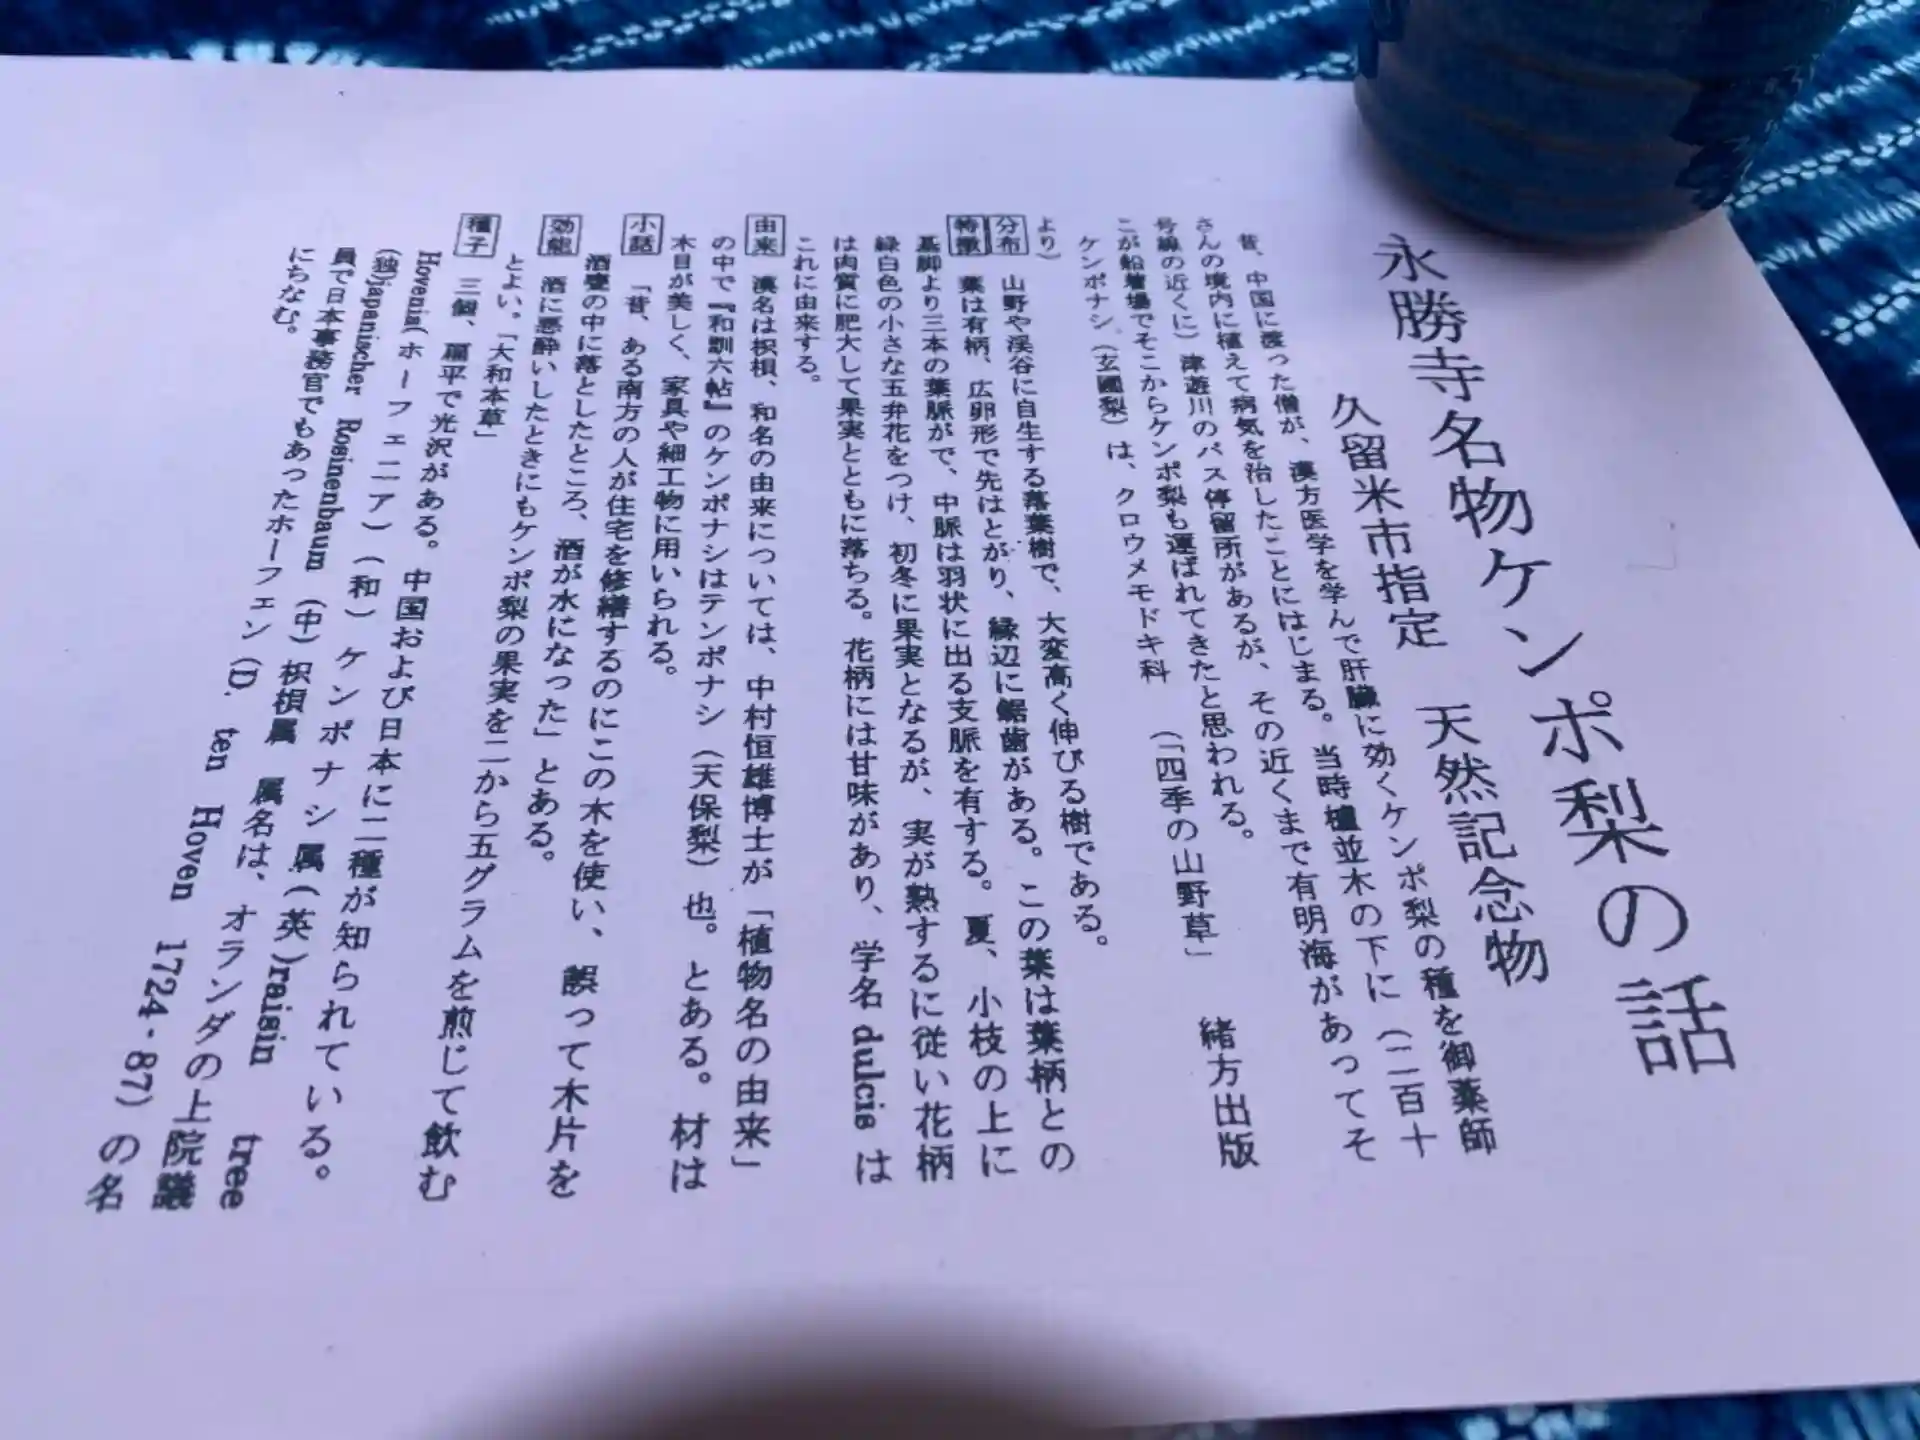 永勝寺名物ケンポ梨の話
久留米市指定 天然記念物
昔、中国に渡った僧が、漢方医学を学んで肝臓に効くケンポ梨の種を御薬師
さんの境内に植えて病気を治したことにはじまる。当時櫨並木の下に（二百十
号線の近くに）津遊川のバス停留所があるが、その近くまで有明海があってそ
こが船着場でそこからケンポ梨も運ばれてきたと思われる。
ケンポナシ（玄圃梨）は、クロウメモドキ科 （「四季の山野草」 緒方出版
より）
分布 山野や渓谷に自生する落葉樹で、大変高く伸びる樹である。
特徴 葉は有柄、広卵形で先はとがり、縁辺に鋸歯がある。この葉は葉柄との
基脚より三本の葉脈がで、中脈は羽状に出る支脈を有する。夏、小枝の上に
緑白色の小さな五弁花をつけ、初冬に果実となるが、実が熟するに従い花柄
は肉質に肥大して果実とともに落ちる。花柄には甘味があり、学名 dulcis は
これに由来する。
由来 漢名は枳椇、和名の由来については、中村恒雄博士が「植物名の由来」
の中で『和馴六帖』のケンポナシはテンポナシ（天保梨）也。とある。材は
木目が美しく、家具や細工物に用いられる。
小話 「昔、ある南方の人が住宅を修繕するのにこの木を使い、誤って木片を
酒甕の中に落としたところ、酒が水になった」とある。
効能 酒に悪酔いしたときにもケンポ梨の果実を二から五グラムを煎じて飲む
とよい。「大和本草」
種子 三個、扁平で光沢がある。中国および日本に二種が知られている。
Hovenia(ホーフェニア)（和）ケンポナシ属(英)raisin tree
(独)japanischer Rosinenbaum（中）枳椇属 属名は、オランダの上院議
員で日本事務官でもあったホーフェン（D. ten Hoven 1724-87）の名
にちなむ。